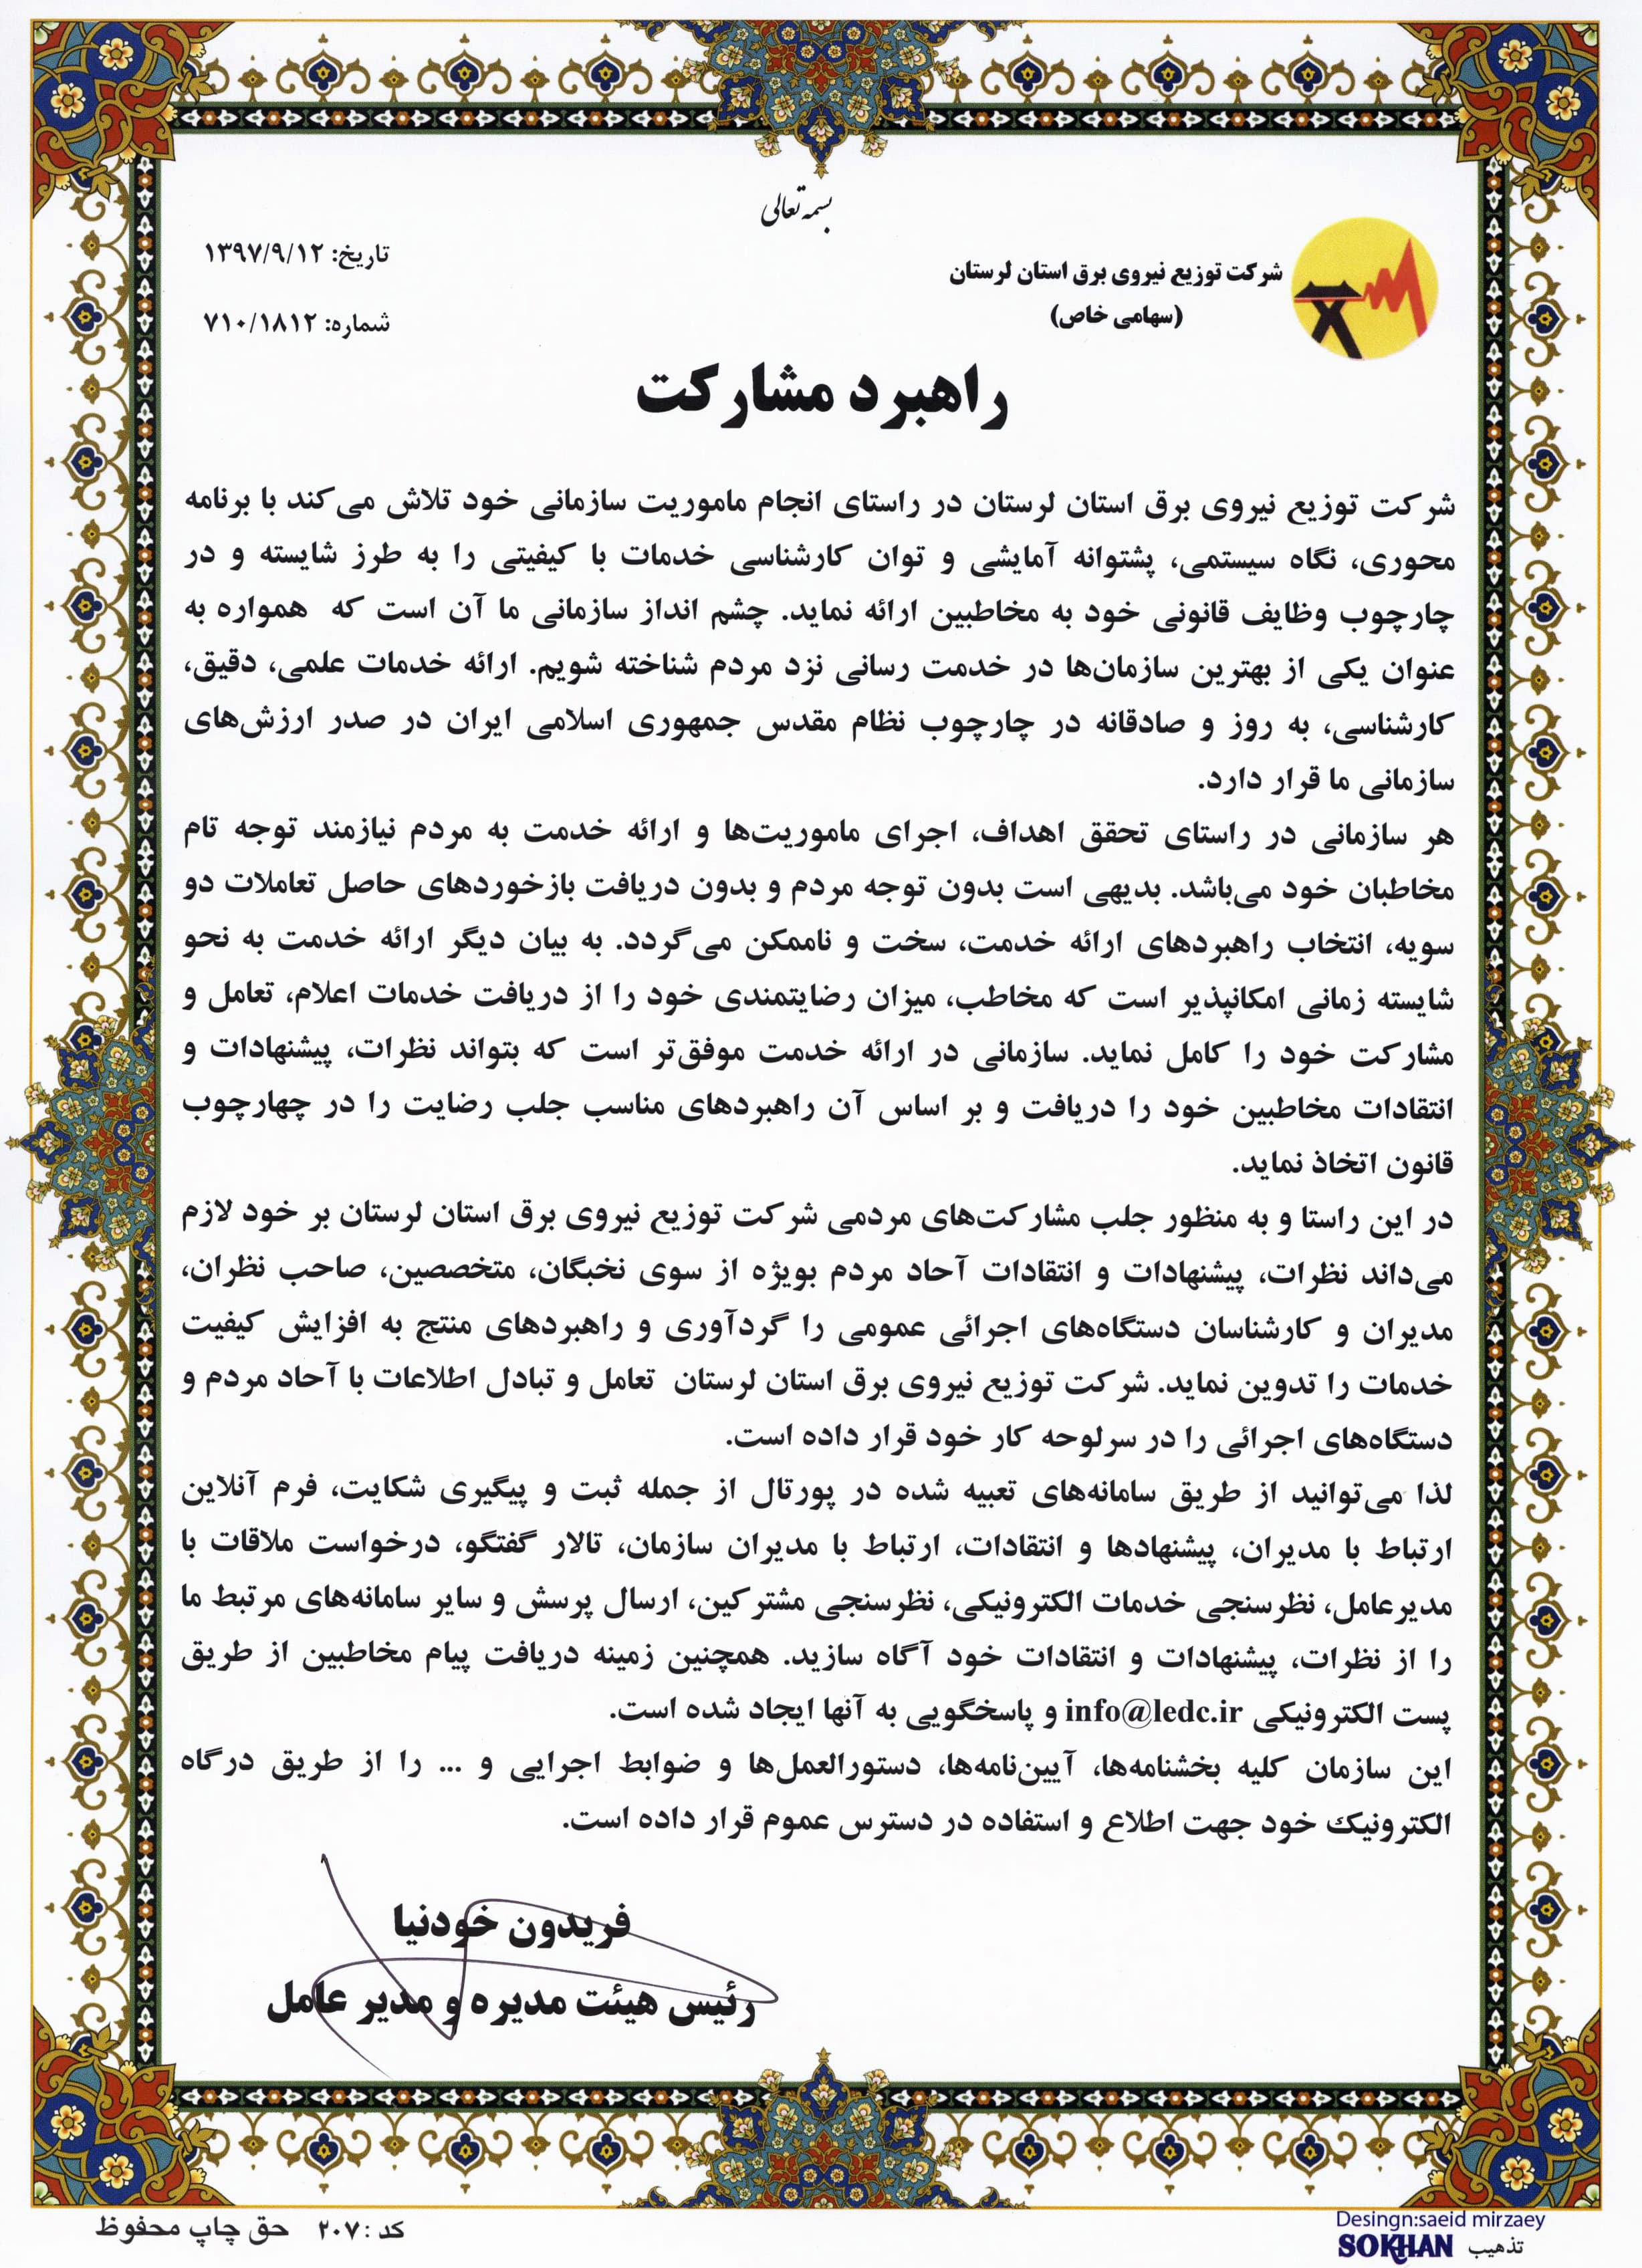 بسمه تعالی
شرکت توزیع نیروی برق استان لرستان
(سهامی خاص)
تاریخ: ۱۳۹۷/۹/۱۲
شماره: ۷۱۰/۱۸۱۲
راهبرد مشارکت
شرکت توزیع نیروی برق استان لرستان در راستای انجام ماموریت سازمانی خود تلاش می‌کند با برنامه
محوری، نگاه سیستمی، پشتوانه آمایشی و توان کارشناسی خدمات با کیفیتی را به طرز شایسته و در
چارچوب وظایف قانونی خود به مخاطبین ارائه نماید. چشم انداز سازمانی ما آن است که همواره به
عنوان یکی از بهترین سازمان‌ها در خدمت رسانی نزد مردم شناخته شویم. ارائه خدمات علمی، دقیق،
کارشناسی، به روز و صادقانه در چارچوب نظام مقدس جمهوری اسلامی ایران در صدر ارزش‌های
سازمانی ما قرار دارد.
هر سازمانی در راستای تحقق اهداف، اجرای ماموریت‌ها و ارائه خدمت به مردم نیازمند توجه تام
مخاطبان خود می‌باشد. بدیهی است بدون توجه مردم و بدون دریافت بازخوردهای حاصل تعاملات دو
سویه، انتخاب راهبردهای ارائه خدمت، سخت و ناممکن می‌گردد. به بیان دیگر ارائه خدمت به نحو
شایسته زمانی امکانپذیر است که مخاطب، میزان رضایتمندی خود را از دریافت خدمات اعلام، تعامل و
مشارکت خود را کامل نماید. سازمانی در ارائه خدمت موفق‌تر است که بتواند نظرات، پیشنهادات و
انتقادات مخاطبین خود را دریافت و بر اساس آن راهبردهای مناسب جلب رضایت را در چهارچوب
قانون اتخاذ نماید.
در این راستا و به منظور جلب مشارکت‌های مردمی شرکت توزیع نیروی برق استان لرستان بر خود لازم
می‌داند نظرات، پیشنهادات و انتقادات آحاد مردم بویژه از سوی نخبگان، متخصصین، صاحب نظران،
مدیران و کارشناسان دستگاه‌های اجرائی عمومی را گردآوری و راهبردهای منتج به افزایش کیفیت
خدمات را تدوین نماید. شرکت توزیع نیروی برق استان لرستان تعامل و تبادل اطلاعات با آحاد مردم و
دستگاه‌های اجرائی را در سرلوحه کار خود قرار داده است.
لذا می‌توانید از طریق سامانه‌های تعبیه شده در پورتال از جمله ثبت و پیگیری شکایت، فرم آنلاین
ارتباط با مدیران، پیشنهادها و انتقادات، ارتباط با مدیران سازمان، تالار گفتگو، درخواست ملاقات با
مدیرعامل، نظرسنجی خدمات الکترونیکی، نظرسنجی مشترکین، ارسال پرسش و سایر سامانه‌های مرتبط ما
را از نظرات، پیشنهادات و انتقادات خود آگاه سازید. همچنین زمینه دریافت پیام مخاطبین از طریق
پست الکترونیکی info@ledc.ir و پاسخگویی به آنها ایجاد شده است.
این سازمان کلیه بخشنامه‌ها، آیین‌نامه‌ها، دستورالعمل‌ها و ضوابط اجرایی و ... را از طریق درگاه
الکترونیک خود جهت اطلاع و استفاده در دسترس عموم قرار داده است.
فریدون خودنیا
رئیس هیئت مدیره و مدیر عامل
Desingn:saeid mirzaey
تذهیب SOKHAN
کد : ۲۰۷ حق چاپ محفوظ